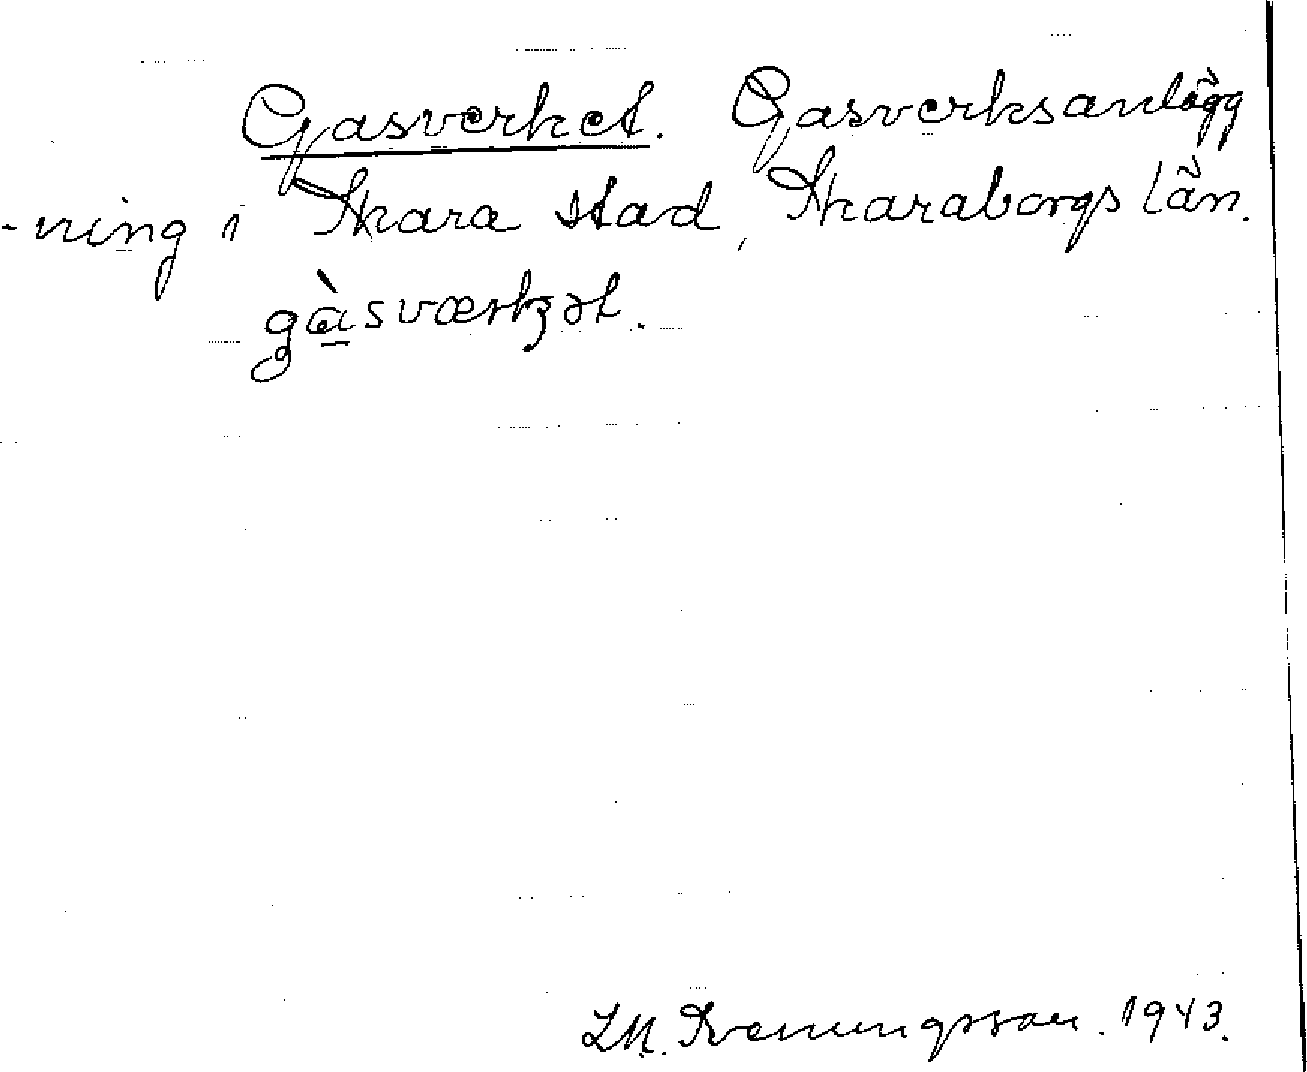 Gasverket. Gasverksanlägg
-ning i Skara stad, Skaraborgs län.
gàsværkət.
L.M. Svenungsson. 1943.